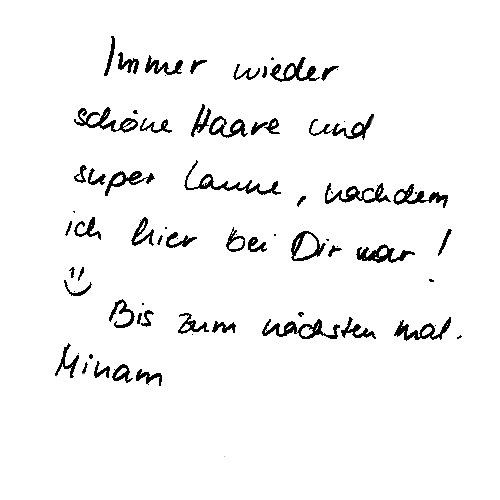 Immer wieder
schöne Haare und
super Laune, nachdem
ich hier bei Dir war!
Bis zum nächsten mal.
Miriam